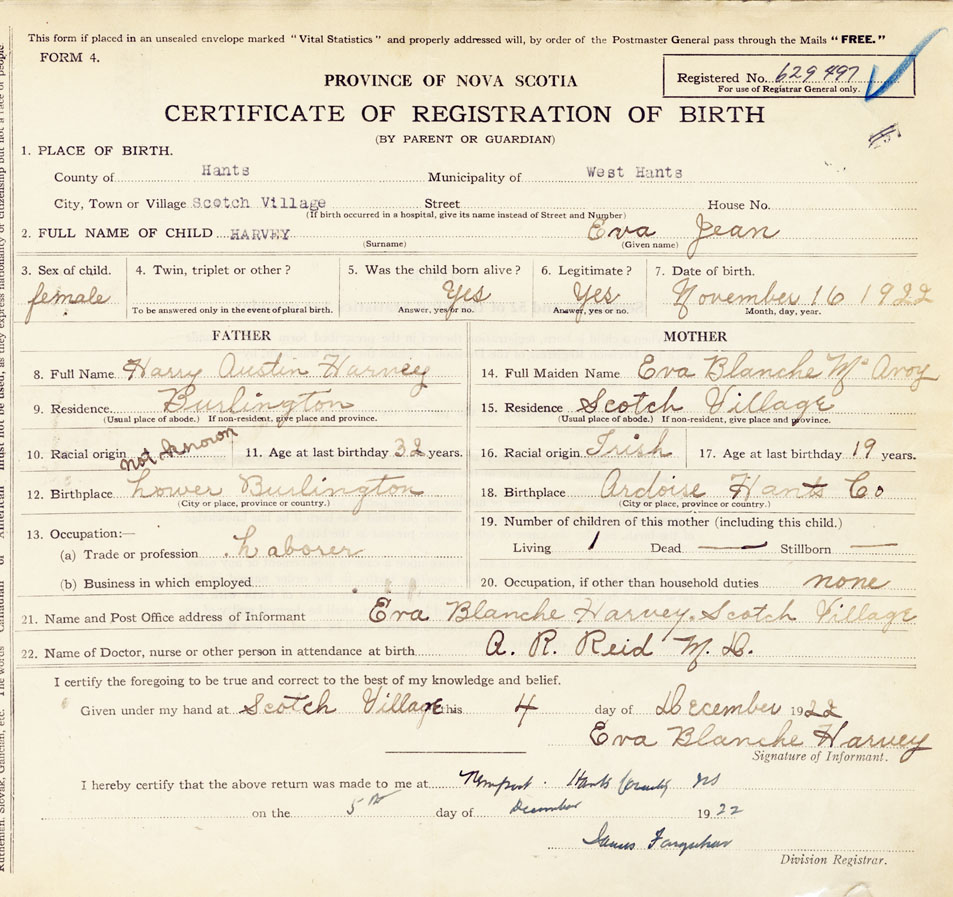 This form if placed in an unsealed envelope marked "Vital Statistics" and properly addressed will, by order of the Postmaster General pass through the Mails "FREE."
FORM 4.
PROVINCE OF NOVA SCOTIA
Registered No. 629497
For use of Registrar General only.
CERTIFICATE OF REGISTRATION OF BIRTH
(BY PARENT OR GUARDIAN)
1. PLACE OF BIRTH.
County of Hants Municipality of West Hants
City, Town or Village Scotch Village Street House No.
(If birth occurred in a hospital, give its name instead of Street and Number)
2. FULL NAME OF CHILD HARVEY Eva Jean
(Surname) (Given name)
3. Sex of child. 4. Twin, triplet or other? 5. Was the child born alive? 6. Legitimate? 7. Date of birth.
female Yes Yes November 16 1922
To be answered only in the event of plural birth. Answer, yes or no. Answer, yes or no. Month, day, year.
FATHER
8. Full Name Harry Austin Harvey
9. Residence Burlington
(Usual place of abode.) If non-resident, give place and province.
10. Racial origin not known 11. Age at last birthday 32 years.
12. Birthplace Lower Burlington
(City or place, province or country.)
13. Occupation:—
(a) Trade or profession Laborer
(b) Business in which employed
MOTHER
14. Full Maiden Name Eva Blanche Mc Avoy
15. Residence Scotch Village
(Usual place of abode.) If non-resident, give place and province.
16. Racial origin Irish 17. Age at last birthday 19 years.
18. Birthplace Ardoise Hants Co
(City or place, province or country.)
19. Number of children of this mother (including this child.)
Living 1 Dead — Stillborn —
20. Occupation, if other than household duties none
21. Name and Post Office address of Informant Eva Blanche Harvey. Scotch Village
22. Name of Doctor, nurse or other person in attendance at birth A. R. Reid M. D.
I certify the foregoing to be true and correct to the best of my knowledge and belief.
Given under my hand at Scotch Village this 4 day of December 1922
Eva Blanche Harvey
Signature of Informant.
I hereby certify that the above return was made to me at Newport. Hants County NS
on the 5th day of December 1922
James Farquhar
Division Registrar.